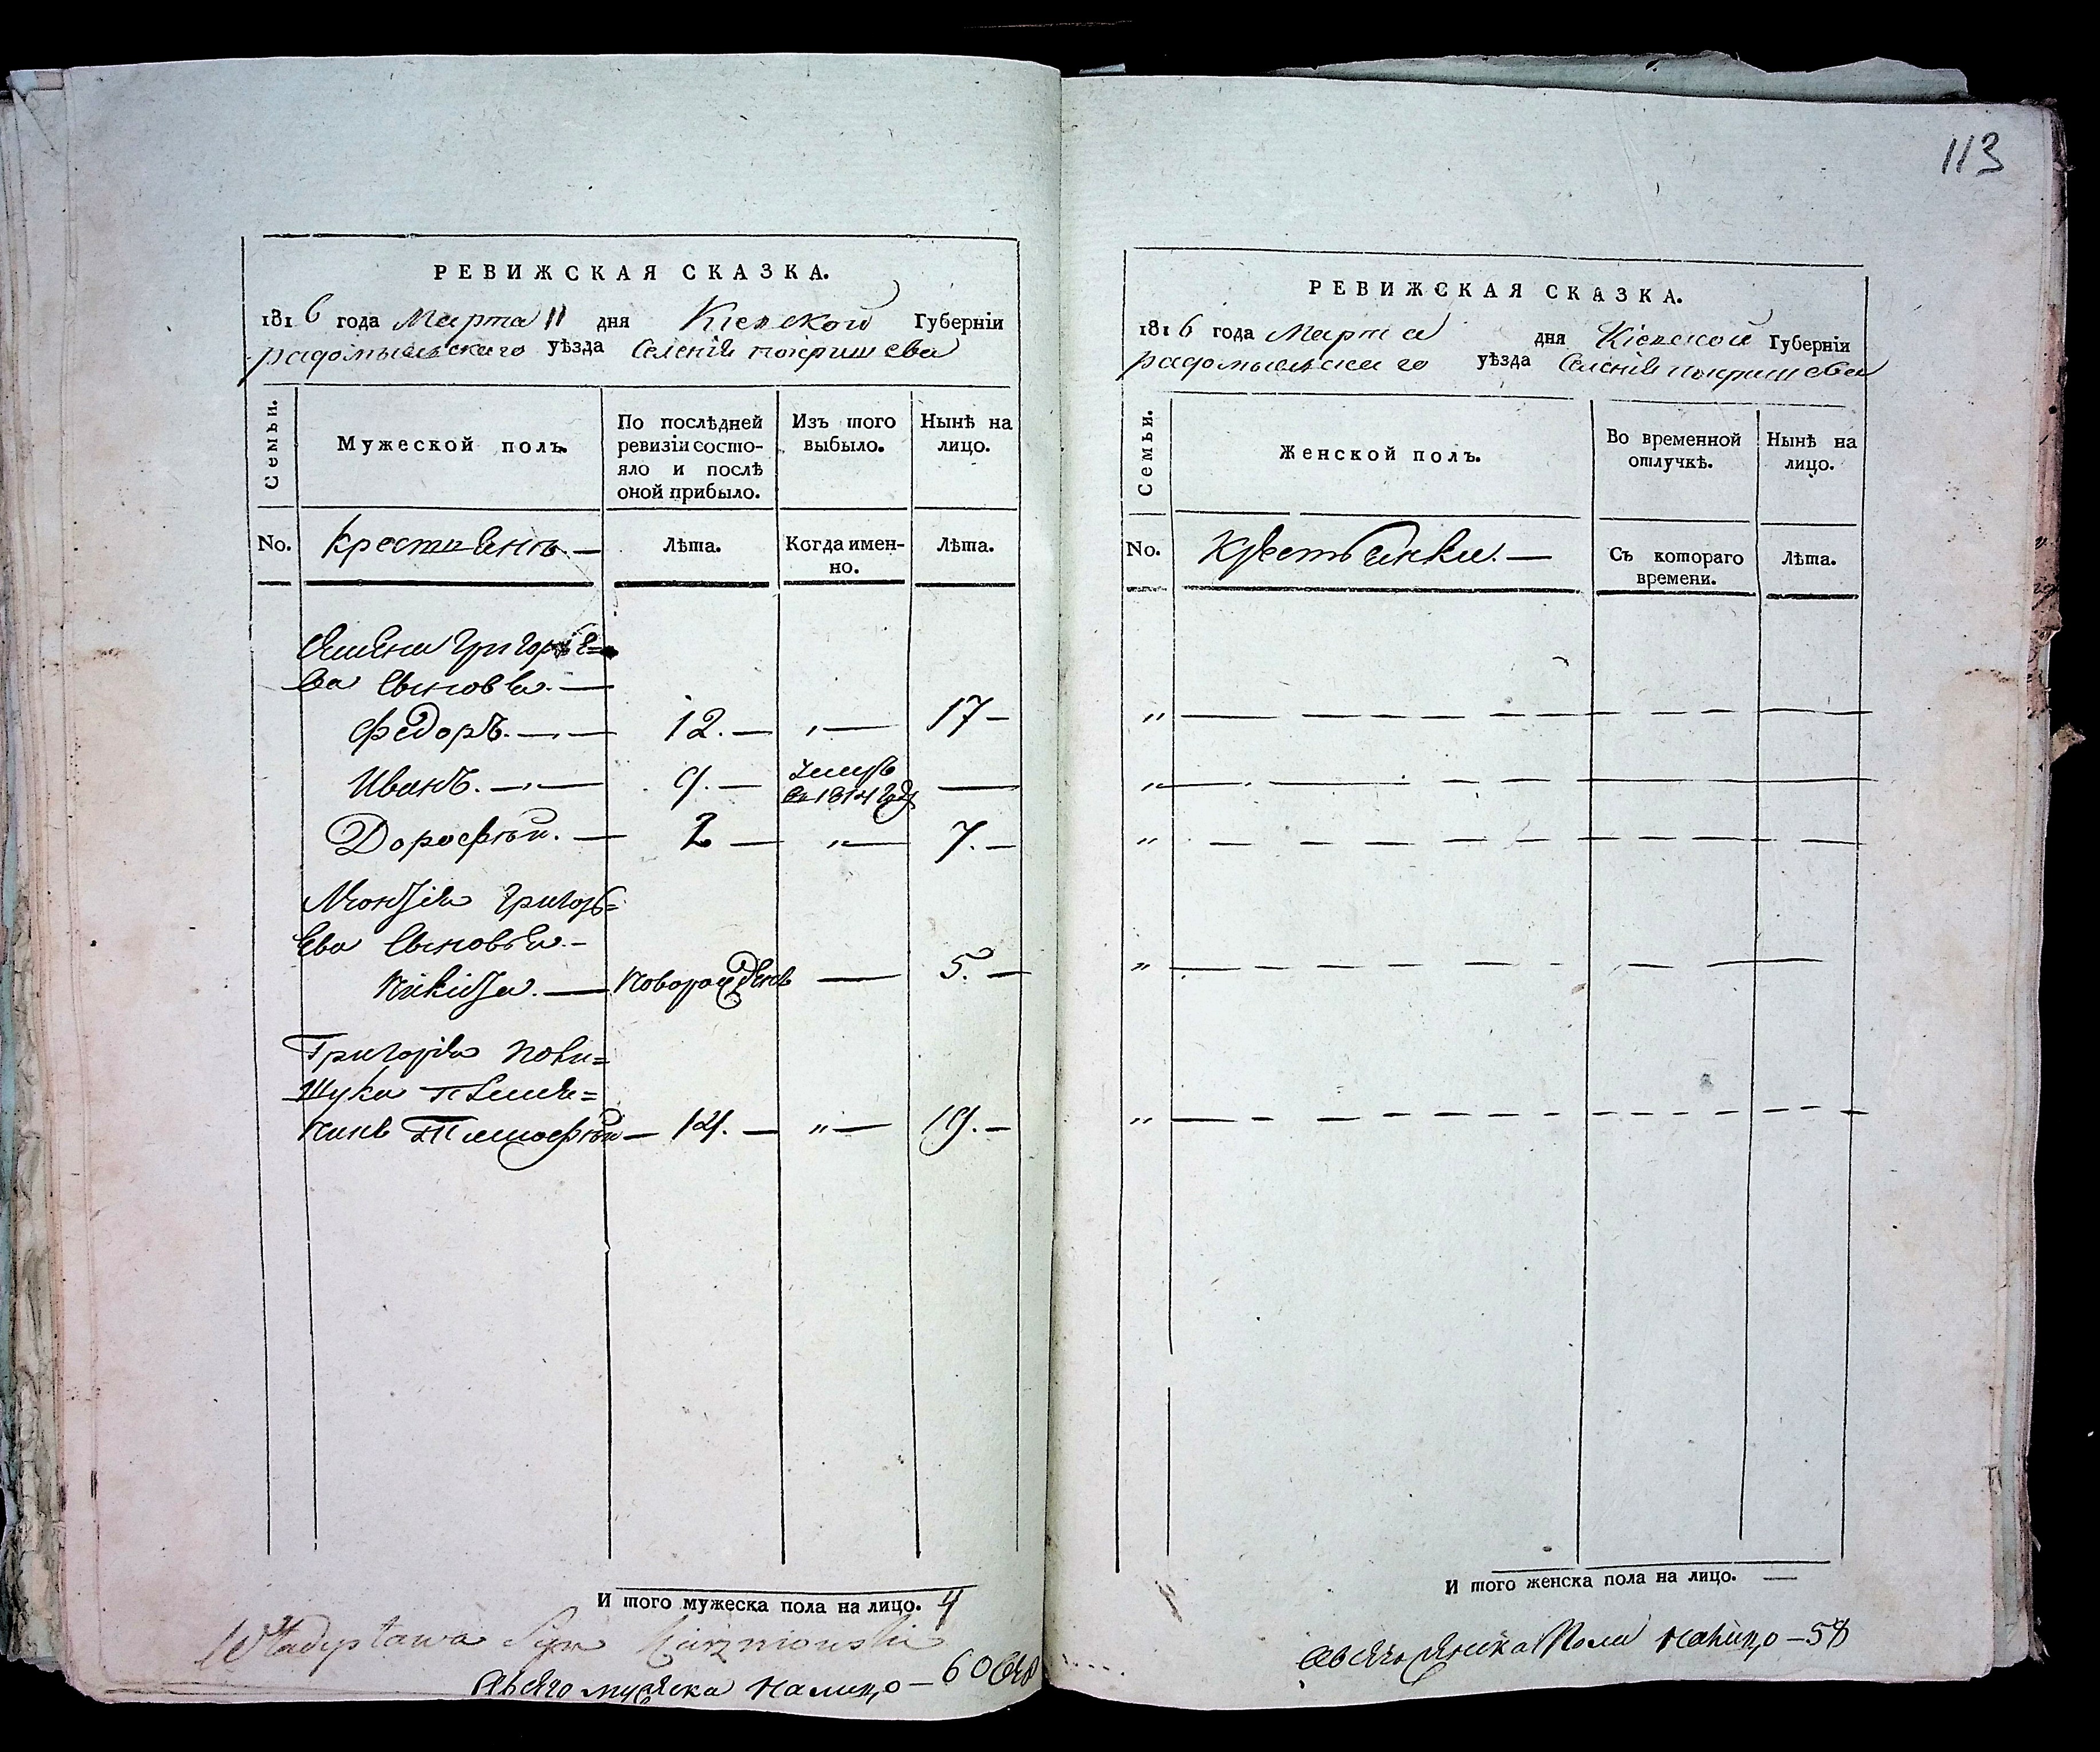 113
РЕВИЖСКАЯ СКАЗКА.
1816 года Марта 11 дня Кіевской Губерніи
радомысльскаго уѣзда Селенія покришева
Семьи.
Мужеской полъ.
По послѣдней ревизіи состо-
яло и послѣ оной прибыло.
Изъ того выбыло.
Нынѣ на лицо.
No. Крестьянъ. — Лѣта. Когда имен-но. Лѣта.
Семена Григорье=
ва сыновья. —
Федоръ. — 12. — „— 17 —
Иванъ. — 9. — умеръ въ 1814 году —
Дорофѣй. — 2 — „— 7. —
Григорь=
ева сыновья. —
Никита. — Новорожденъ — 5. —
Григорія Поли=
щука племя=
никъ Тимофѣй — 14. — „— 19. —
И того мужеска пола на лицо. 4
Władysława Syn
Всего мужеска налицо — 60
РЕВИЖСКАЯ СКАЗКА.
1816 года Марта дня Кіевской Губерніи
радомысльскаго уѣзда Селенія покришева
Семьи.
Женской полъ.
Во временной отлучкѣ.
Нынѣ на лицо.
No. Крестьянки. — Съ котораго времени. Лѣта.
И того женска пола на лицо. —
Всего женска пола налицо — 58